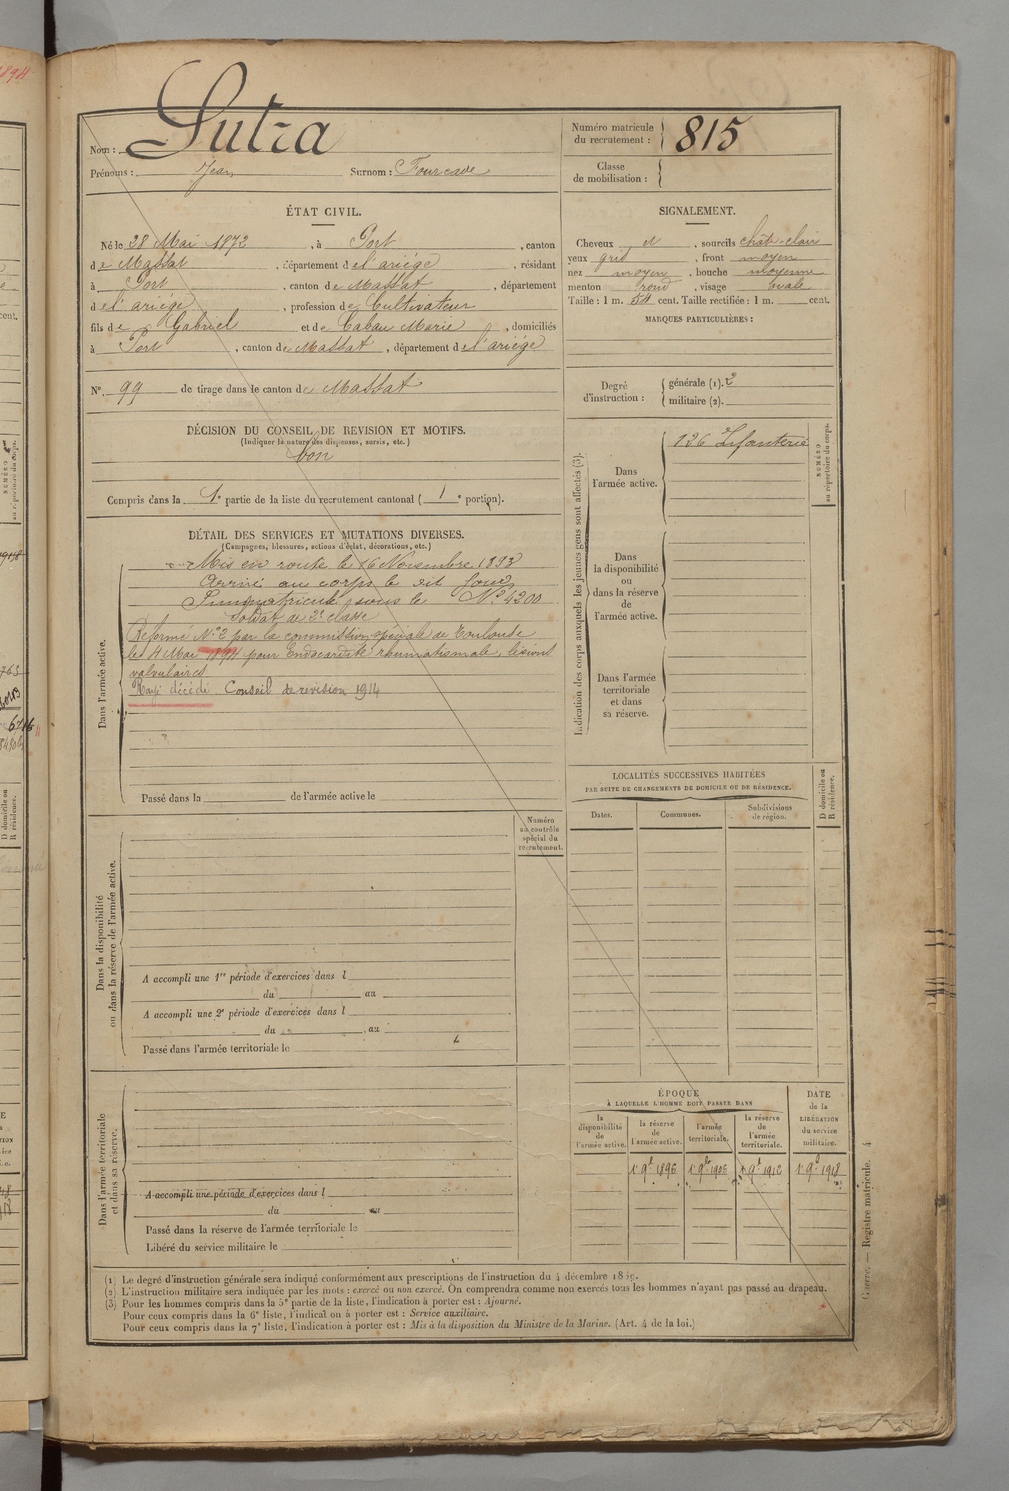 Nom : Sutra
Prénoms : Jean Surnom : Fourcade
Numéro matricule du recrutement : 815
Classe de mobilisation :
ÉTAT CIVIL.
Né le 28 Mai 1872, à Port, canton
de Massat, département de l'ariége, résidant
à Port, canton de Massat, département
de l'ariége, profession de Cultivateur
fils de Gabriel et de Cabau Marie, domiciliés
à Port, canton de Massat, département de l'ariége
N°. 99 de tirage dans le canton de Massat
DÉCISION DU CONSEIL DE REVISION ET MOTIFS.
(Indiquer la nature des dispenses, sursis, etc.)
bon
Compris dans la 1e partie de la liste du recrutement cantonal (1e portion).
SIGNALEMENT.
Cheveux et, sourcils chât-clair
yeux gris, front moyen
nez moyen, bouche moyenne
menton rond, visage ovale
Taille : 1 m. 54 cent. Taille rectifiée : 1 m. cent.
MARQUES PARTICULIÈRES :
Degré d'instruction : générale (1). 2
militaire (2).
DÉTAIL DES SERVICES ET MUTATIONS DIVERSES.
(Campagnes, blessures, actions d'éclat, décorations, etc.)
Dans l'armée active.
Mis en route le 16 Novembre 1893
Arrivé au corps le dit jour
Immatriculé sous le N° 4200
Soldat de 2e classe
Réformé N° 2 par la commission spéciale de Toulouse
le 4 Mai 1894 pour Endocardite rhumatismale, lésions
valvulaires
Rayé décédé Conseil de revision 1914
Passé dans la de l'armée active le
Numéro au contrôle spécial du recrutement.
Dans la disponibilité ou dans la réserve de l'armée active.
A accompli une 1re période d'exercices dans l
du au
A accompli une 2e période d'exercices dans l
du au
Passé dans l'armée territoriale le
Dans l'armée territoriale et dans sa réserve.
A accompli une période d'exercices dans l
du au
Passé dans la réserve de l'armée territoriale le
Libéré du service militaire le
Indication des corps auxquels les jeunes gens sont affectés (3).
Dans l'armée active.
126 Infanterie
NUMÉRO au répertoire du corps.
Dans la disponibilité ou dans la réserve de l'armée active.
Dans l'armée territoriale et dans sa réserve.
LOCALITÉS SUCCESSIVES HABITÉES
PAR SUITE DE CHANGEMENTS DE DOMICILE OU DE RÉSIDENCE.
Dates. Communes. Subdivisions de région. D domicile ou R résidence.
ÉPOQUE
À LAQUELLE L'HOMME DOIT PASSER DANS
DATE de la LIBÉRATION du service militaire.
la disponibilité de l'armée active. la réserve de l'armée active. l'armée territoriale. la réserve de l'armée territoriale.
1er 9bre 1896 1er 9bre 1906 1er 9bre 1912 1er 9bre 1918
(1) Le degré d'instruction générale sera indiqué conformément aux prescriptions de l'instruction du 4 décembre 1889.
(2) L'instruction militaire sera indiquée par les mots : exercé ou non exercé. On comprendra comme non exercés tous les hommes n'ayant pas passé au drapeau.
(3) Pour les hommes compris dans la 5e partie de la liste, l'indication à porter est : Ajourné.
Pour ceux compris dans la 6e liste, l'indication à porter est : Service auxiliaire.
Pour ceux compris dans la 7e liste, l'indication à porter est : Mis à la disposition du Ministre de la Marine. (Art. 4 de la loi.)
Guerre. — Registre matricule. 4